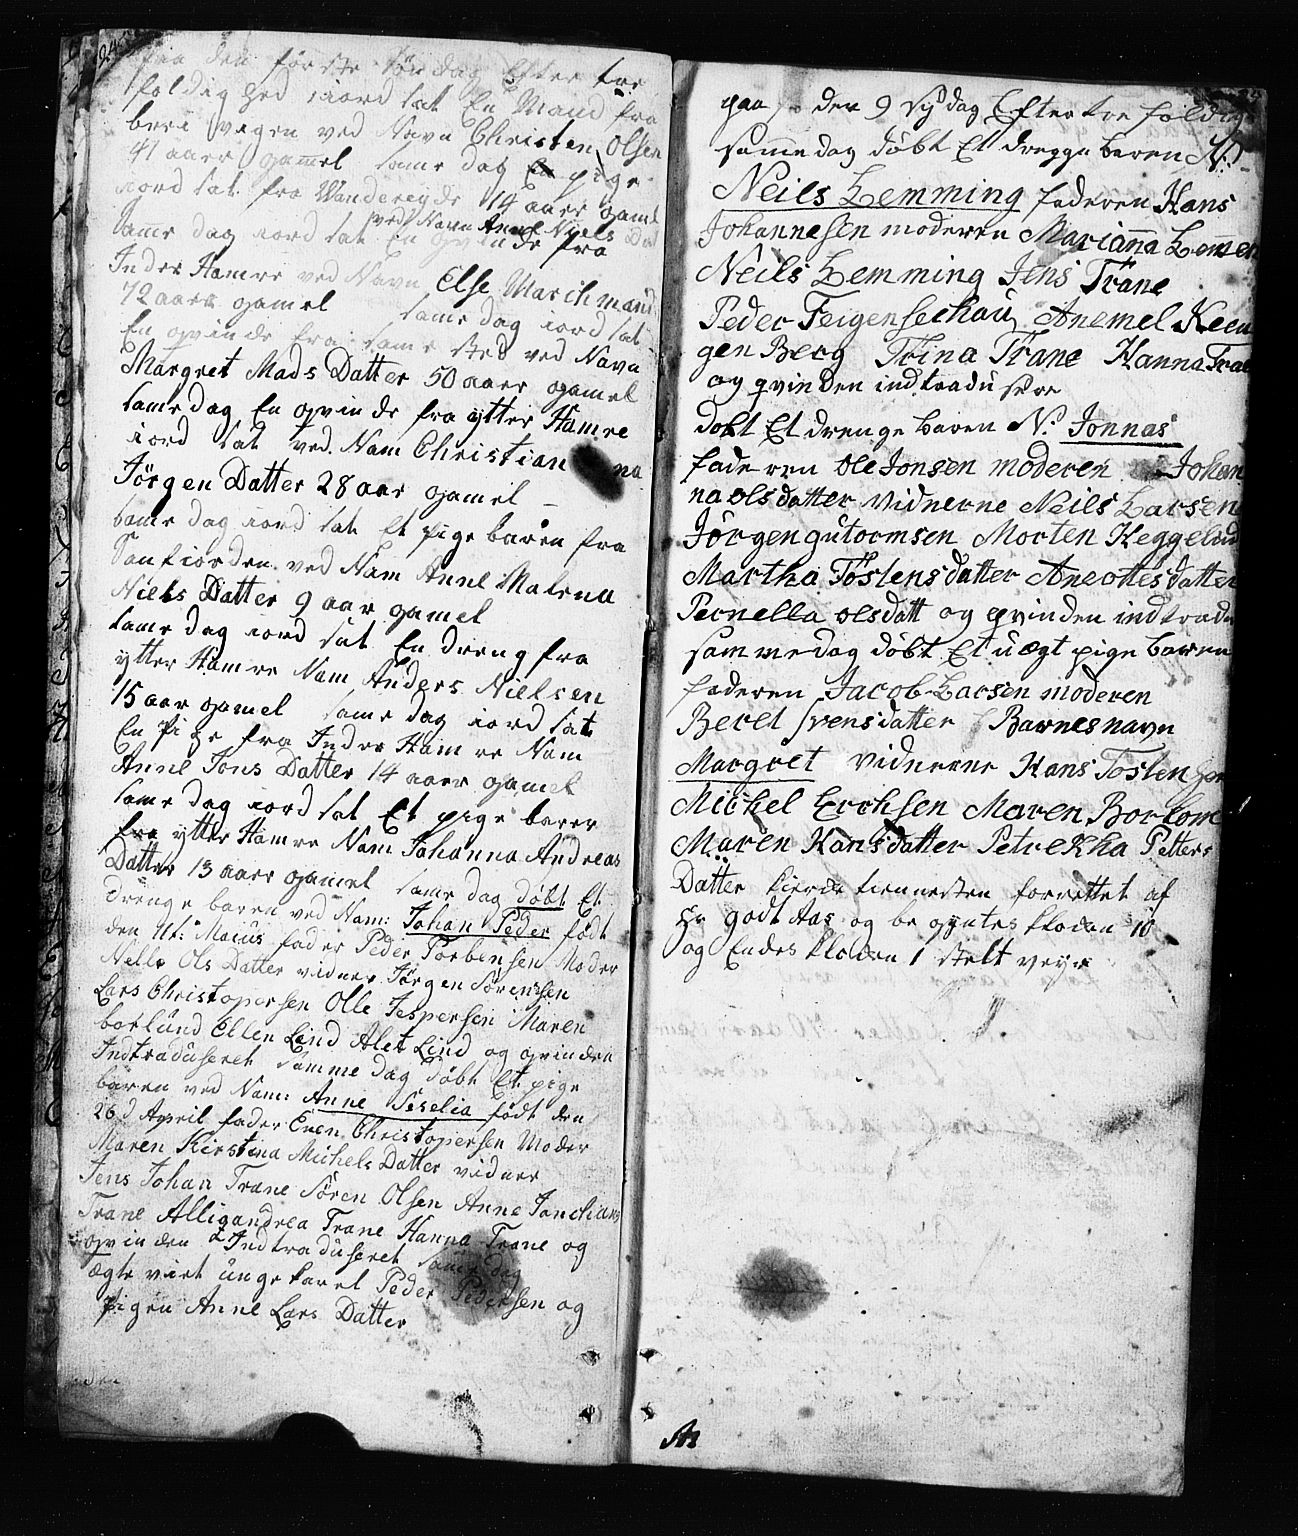 24
paa den første Søndag Efter tre
foldighed iord sat En Mand fra
beri vigen ved Navn Christen Olsen
41 aar gammel same dag En pige
iord sat fra Wandereyde 14 aar gamel
ved Navn Anne Niels Dat
same dag iord sat En qvinde fra
Inder Hamre ved Navn Else Marchmand
72 aar gamel same dag iord sat
En qvinde fra same sted ved Navn
Margret Mads Datter 50 aar gamel
same dag En qvinde fra ytter Hamre
iord sat ved Nam Christian na
Jörgen Datter 28 aar gamel
same dag iord sat Et pige baren fra
Sanfiorden ved Nam Anne Malena
Niels Datter 9 aar gamel
same dag iord sat En dreng fra
ytter Hamre Nam Anders Nielsen
15 aar gamel same dag iord sat
En Pige fra Inder Hamre Nam
Anne Jons Datter 14 aar gamel
same dag iord sat Et pige barer
fra ytter Hamre Nam Johanna Andreas
Datter 13 aar gamel same dag döbt Et
drenge baren ved Nam: Johan Peder födt
den 11t: Maius fader Peder Torbensen Moder
Nelle Ols Datter vidner Jörgen Sörensen
Lars Christopersen Olle Jespersen Maren
borlund Ellen Lind Alet Lind og qvinden
Indtraduseret samme dag döbt Et pige
baren ved Nam: Anne Siselia födt den
26d April fader Even Christopersen Moder
Maren Kirstina Michels Datter vidner
Jens Johan Trane Sören Olsen Anne
Trane Alligandrea Trane Hanna Trane og
qvinden Indtraduseret same dag
ægte viet unge karel Peder Pedersen og
Pigen Anne Lars Datter
paa den 9 syndag Efter tre foldig
samme dag döbt Et dregge baren N:
Neils Lemming faderen Hans
Johannesen moderen Marianna Lemmen
Neils Lemming Jens Trane
Peder Feigenschau Anemel Keen
gen Berg Trina Trane Hanna Tran
og qvinden indtradusere
döbt Et drenge baren N: Jonnas
faderen Ole Jonsen moderen Johan
na olsdatter vidnerne Neils Larsen
Jörgen gutormsen Morten Heggelund
Martha Töstensdatter Aneottesdatter
Pernella olsdatt og qvinden indtradu
sammedag döbt Et uægt pige baren
faderen Jacob Larsen moderen
Beret svensdatter Barnesnavn
Margret vidnerne Hans Tosten
Michel Erchsen Maren Bor
Maren Hansdatter Petrekha Petters
Datter kierke tiennesten forrettet af
Hr godt Aas og be gyntes kloken 10
og Endes kloken 1 stelt veyr